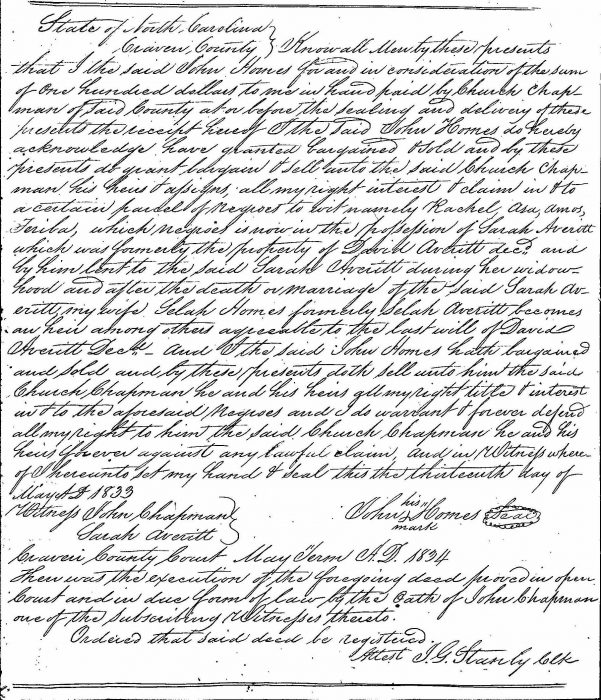 State of North Carolina }
Craven County } Know all Men by these presents
that I the said John Homes for and in consideration of the sum
of One hundred dollars to me in hand paid by Church Chap-
man of said County at or before the sealing and delivery of these
presents the receipt hereof I the said John Homes do hereby
acknowledge have granted bargained & sold and by these
presents do grant bargain & sell unto the said Church Chap-
man his heirs & assigns, all my right interest & claim in & to
a certain parcel of Negroes to wit namely Rachel, Asa, Amos,
Feriba, which negroes is now in the possession of Sarah Averitt
which was formerly the property of David Averitt decd. and
by him lent to the said Sarah Averitt during her widow-
hood and after the death or marriage of the said Sarah Av-
eritt, my wife Selah Homes formerly Selah Averitt becomes
an heir among others agreeable to the last will of David
Averitt Decd. - And I the said John Homes hath bargained
and sold and by these presents doth sell unto him the said
Church Chapman he and his heirs all my right title & interest
in & to the aforesaid Negroes and I do warrant & forever defend
all my right to him the said Church Chapman he and his
heirs forever against any lawful claim, and in Witness where-
of I hereunto set my hand & seal this the thirteenth day of
May A.D 1833
Witness John Chapman } John his mark Homes Seal
Sarah Averitt
Craven County Court May Term A.D. 1834
Then was the execution of the foregoing deed proved in open
Court and in due form of law by the Oath of John Chapman
one of the subscribing Witnesses thereto.
Ordered that said deed be registered.
Attest J. G. Stanly Clk